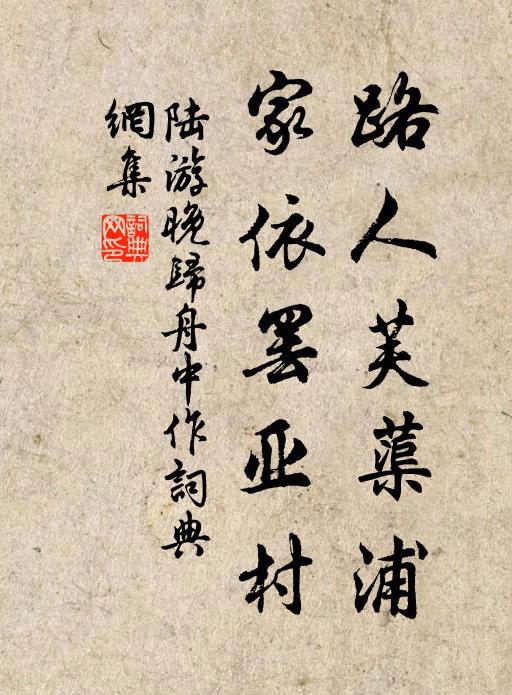 路人芙蕖浦
家依罢亚村
陆游晚歸舟中作詞典
網集
詞典
网印